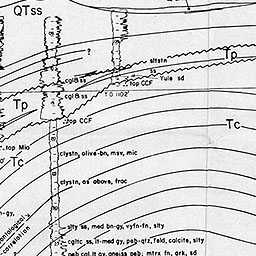 QTss
?
sltstn
Tp
cgl & ss
top CCF
ss
Yule sd
cgl & ss
T D 1102'
Tp
top CCF
Tc
top Mio
clystn, olive-bn, msv, mic
Tc
clystn, as above, frac
gn-gy,
slty ss, med bn-gy, vfyn-fn, slty
correlation
cgltc ss, lt-med gy, peb-qtz, feld, calcite, slty
peb cgl, lt gy, gneiss peb; mtrx fn, ark, sd